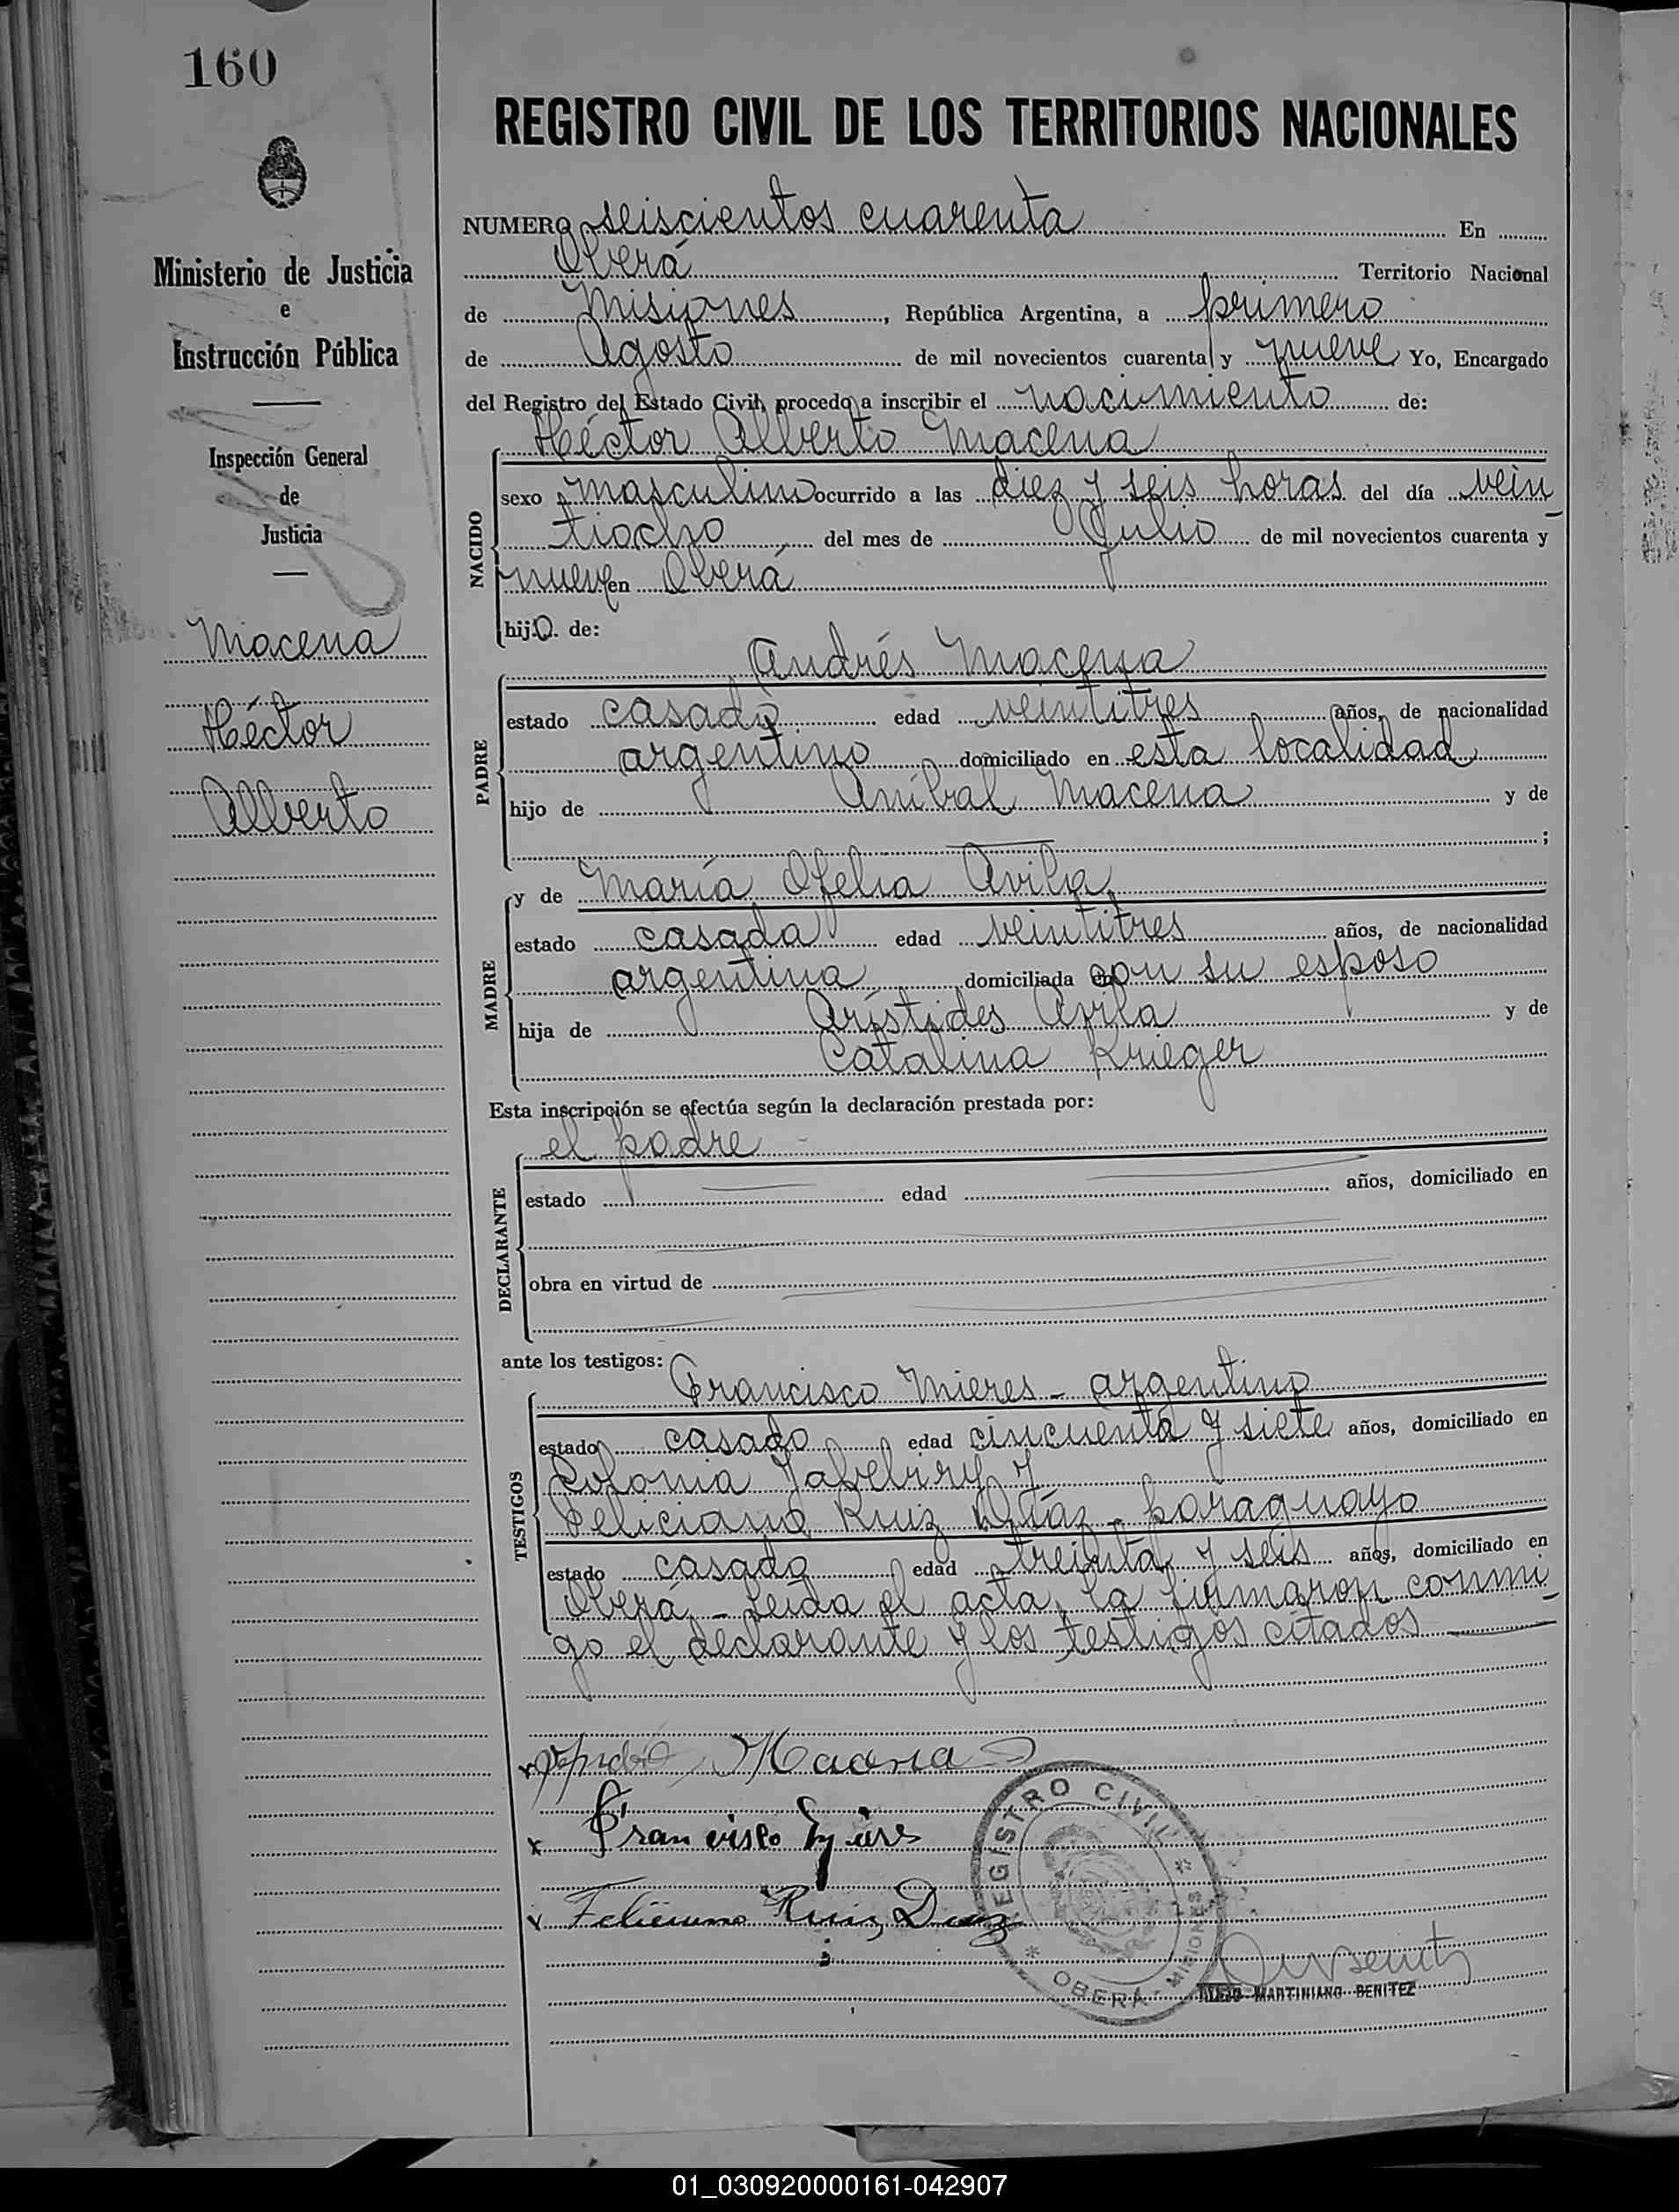 160
REGISTRO CIVIL DE LOS TERRITORIOS NACIONALES
Ministerio de Justicia
e
Instrucción Pública
Inspección General
de
Justicia
Macena
Héctor
Alberto
NUMERO seiscientos cuarenta En
Oberá Territorio Nacional
de Misiones, República Argentina, a primero
de Agosto de mil novecientos cuarenta y nueve Yo, Encargado
del Registro del Estado Civil, procedo a inscribir el nacimiento de:
Héctor Alberto Macena
NACIDO
sexo masculino ocurrido a las diez y seis horas del día vein
tiocho del mes de Julio de mil novecientos cuarenta y
nueve en Oberá
hijo. de:
Andrés Macena
PADRE
estado casado edad veintitres años, de nacionalidad
argentino domiciliado en esta localidad
hijo de Aníbal Macena y de
;
y de María Ofelia Avila
MADRE
estado casada edad veintitres años, de nacionalidad
argentina domiciliada con su esposo
hija de Arístides Avila y de
Catalina Krieger
Esta inscripción se efectúa según la declaración prestada por:
el padre
DECLARANTE
estado edad años, domiciliado en
obra en virtud de
ante los testigos:
Francisco Mieres - argentino
TESTIGOS
estado casado edad cincuenta y siete años, domiciliado en
Colonia Yabebiry y
Feliciano Ruiz Díaz - paraguayo
estado casado edad treinta y seis años, domiciliado en
Oberá. - Leída el acta, la firmaron conmi
go el declarante y los testigos citados
Francisco Mieres
Feliciano Ruiz Diaz
REGISTRO CIVIL
OBERÁ - MISIONES
MARTINIANO BENITEZ
01_030920000161-042907